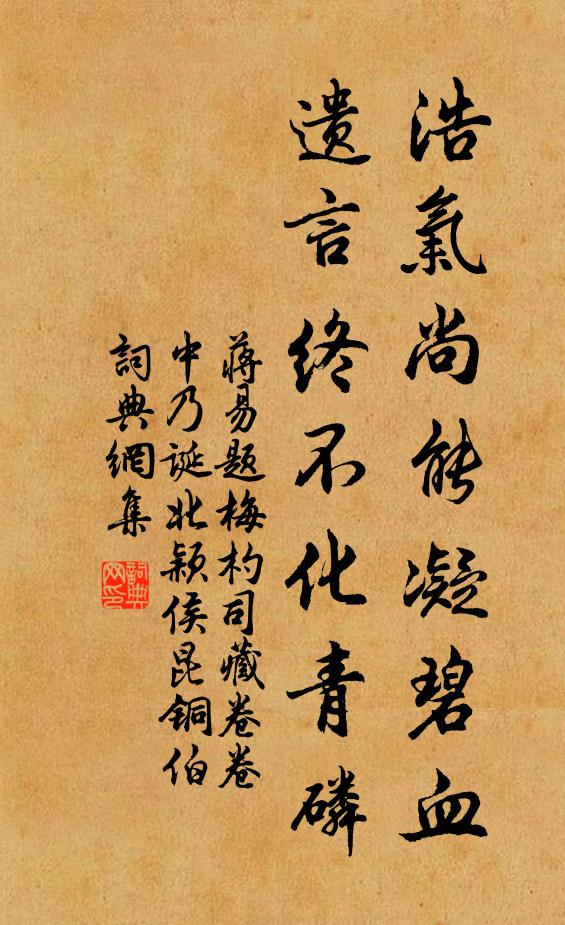 浩氣尚能凝碧血
遺言終不化青磷
蔣易題梅杓司藏卷卷
中乃誕北穎侯昆銅伯
詞典網集
詞典网印